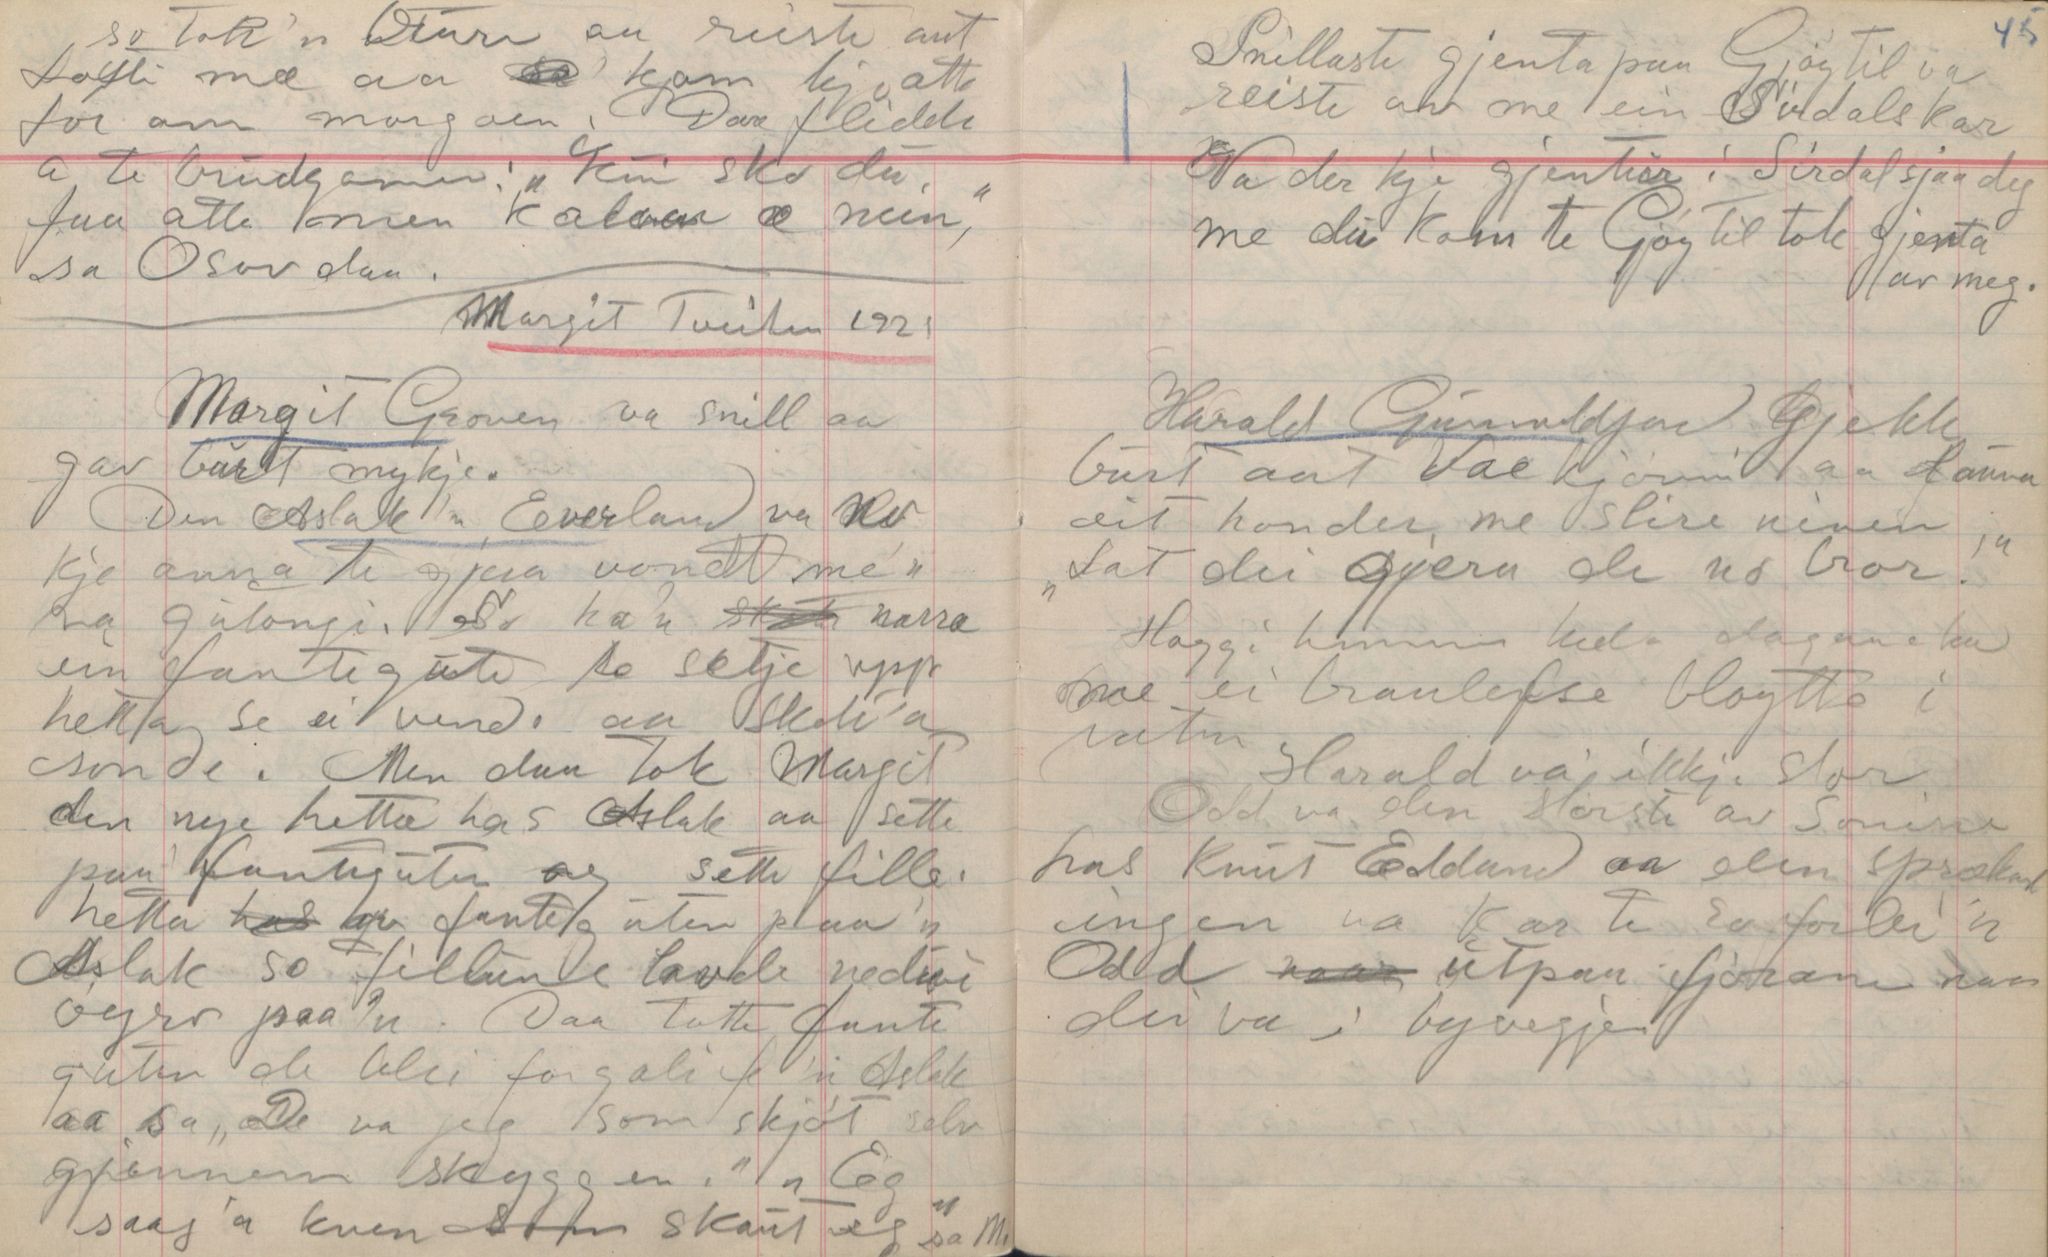 so tok'n Sturi au reiste aut
Lofti mæ aa kom kj atte
for om morgoen. Daa flidde
a te brudgamen: „Kun sko du,
faa atte men kalvar æ nein,"
sa Osov daa.
Margit Tveiten 1921
Margit Groven va snill aa
gav burt mykje.
Den Aslak'n Everland va no
kje anna te gjera vondt me'n
na gutongi. So ha'n narra
ein fantegute te setje upp
hetta se ei vend. aa skaut'a
sonde. Men daa tok Margit
den nye hetta has Aslak aa sette
paa fanteguten og sette fille-
hetta av fanteguten paa'n
Aslak so fillune lavde nedivi
ogro paa'n. Daa totte fante
guten de blei forgali fe'n Aslak
aa sa „De va jeg som skjøt selv
gjønnem skyggen." „Eg
saag'a kven skaut eg" sa M.
45
Snillaste gjenta paa Gjøgtil va
reiste av me ein Sirdalskar
Va der kje gjentur i Sirdal sjaa deg
me du kom te Gjøgtil tok gjenta
av meg.
Harald Gunnuldson Gjekk
burt aat Vae kjønni aa launa
eit honder, me slire niven
„Lat dei gjera de no bror."
Hoggi
mæ ei braulefse bløytte i
vatn.
Harald va ikkje stor
Odd va den største av sonine
has Knut Edland aa den sprækaste
ingen va kar te
Odd utpaa fjorane naar
dei va i byvegje